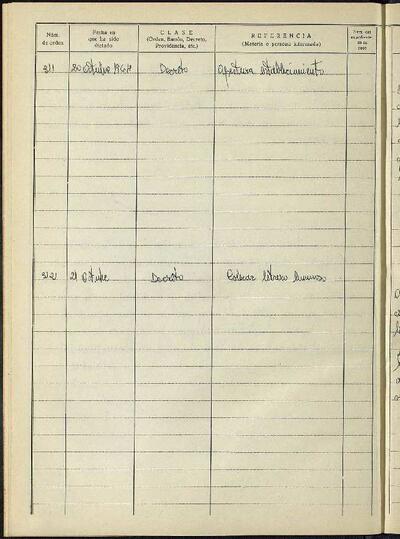 Núm. de orden
Fecha en que ha sido dictado
CLASE (Orden, Bando, Decreto, Providencia, etc.)
REFERENCIA (Materia o persona interesada)
311 20 Octubre 1964 Decreto Apertura establecimiento
312 21 Octubre Decreto Colocar letrero luminoso